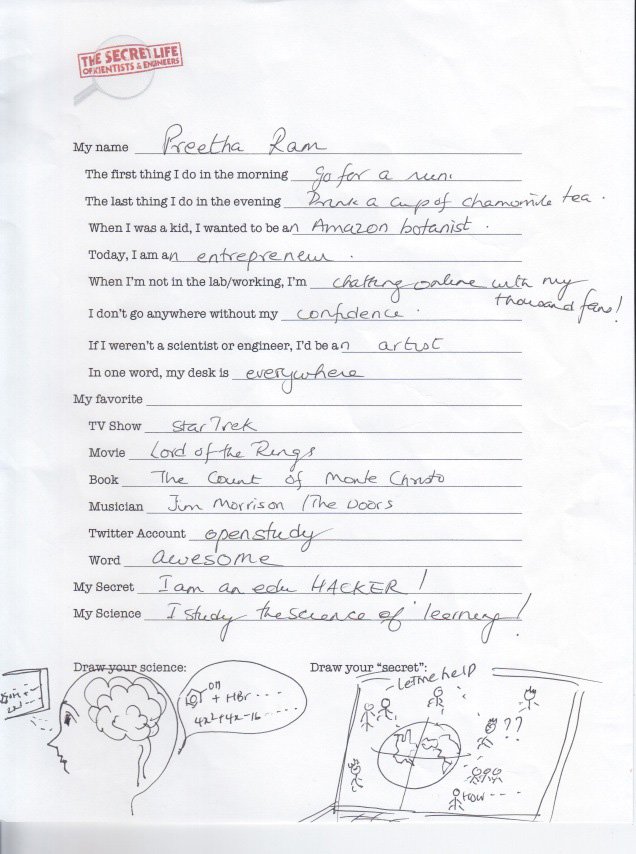 THE SECRET LIFE
OF SCIENTISTS & ENGINEERS
My name Preetha Ram
The first thing I do in the morning Go for a run.
The last thing I do in the evening Drink a cup of chamomile tea.
When I was a kid, I wanted to be an Amazon botanist.
Today, I am an entrepreneur.
When I'm not in the lab/working, I'm chatting online with my
thousand fans!
I don't go anywhere without my confidence.
If I weren't a scientist or engineer, I'd be an artist
In one word, my desk is everywhere
My favorite
TV Show Star Trek
Movie Lord of the Rings
Book The Count of Monte Christo
Musician Jim Morrison / The Doors
Twitter Account openstudy
Word awesome
My Secret I am an edu HACKER!
My Science I study the science of learning!
Draw your science: Draw your "secret":
let me help
OH
+ HBr - - - -
4x²+4x-16 - - - -
??
HOW - - - -